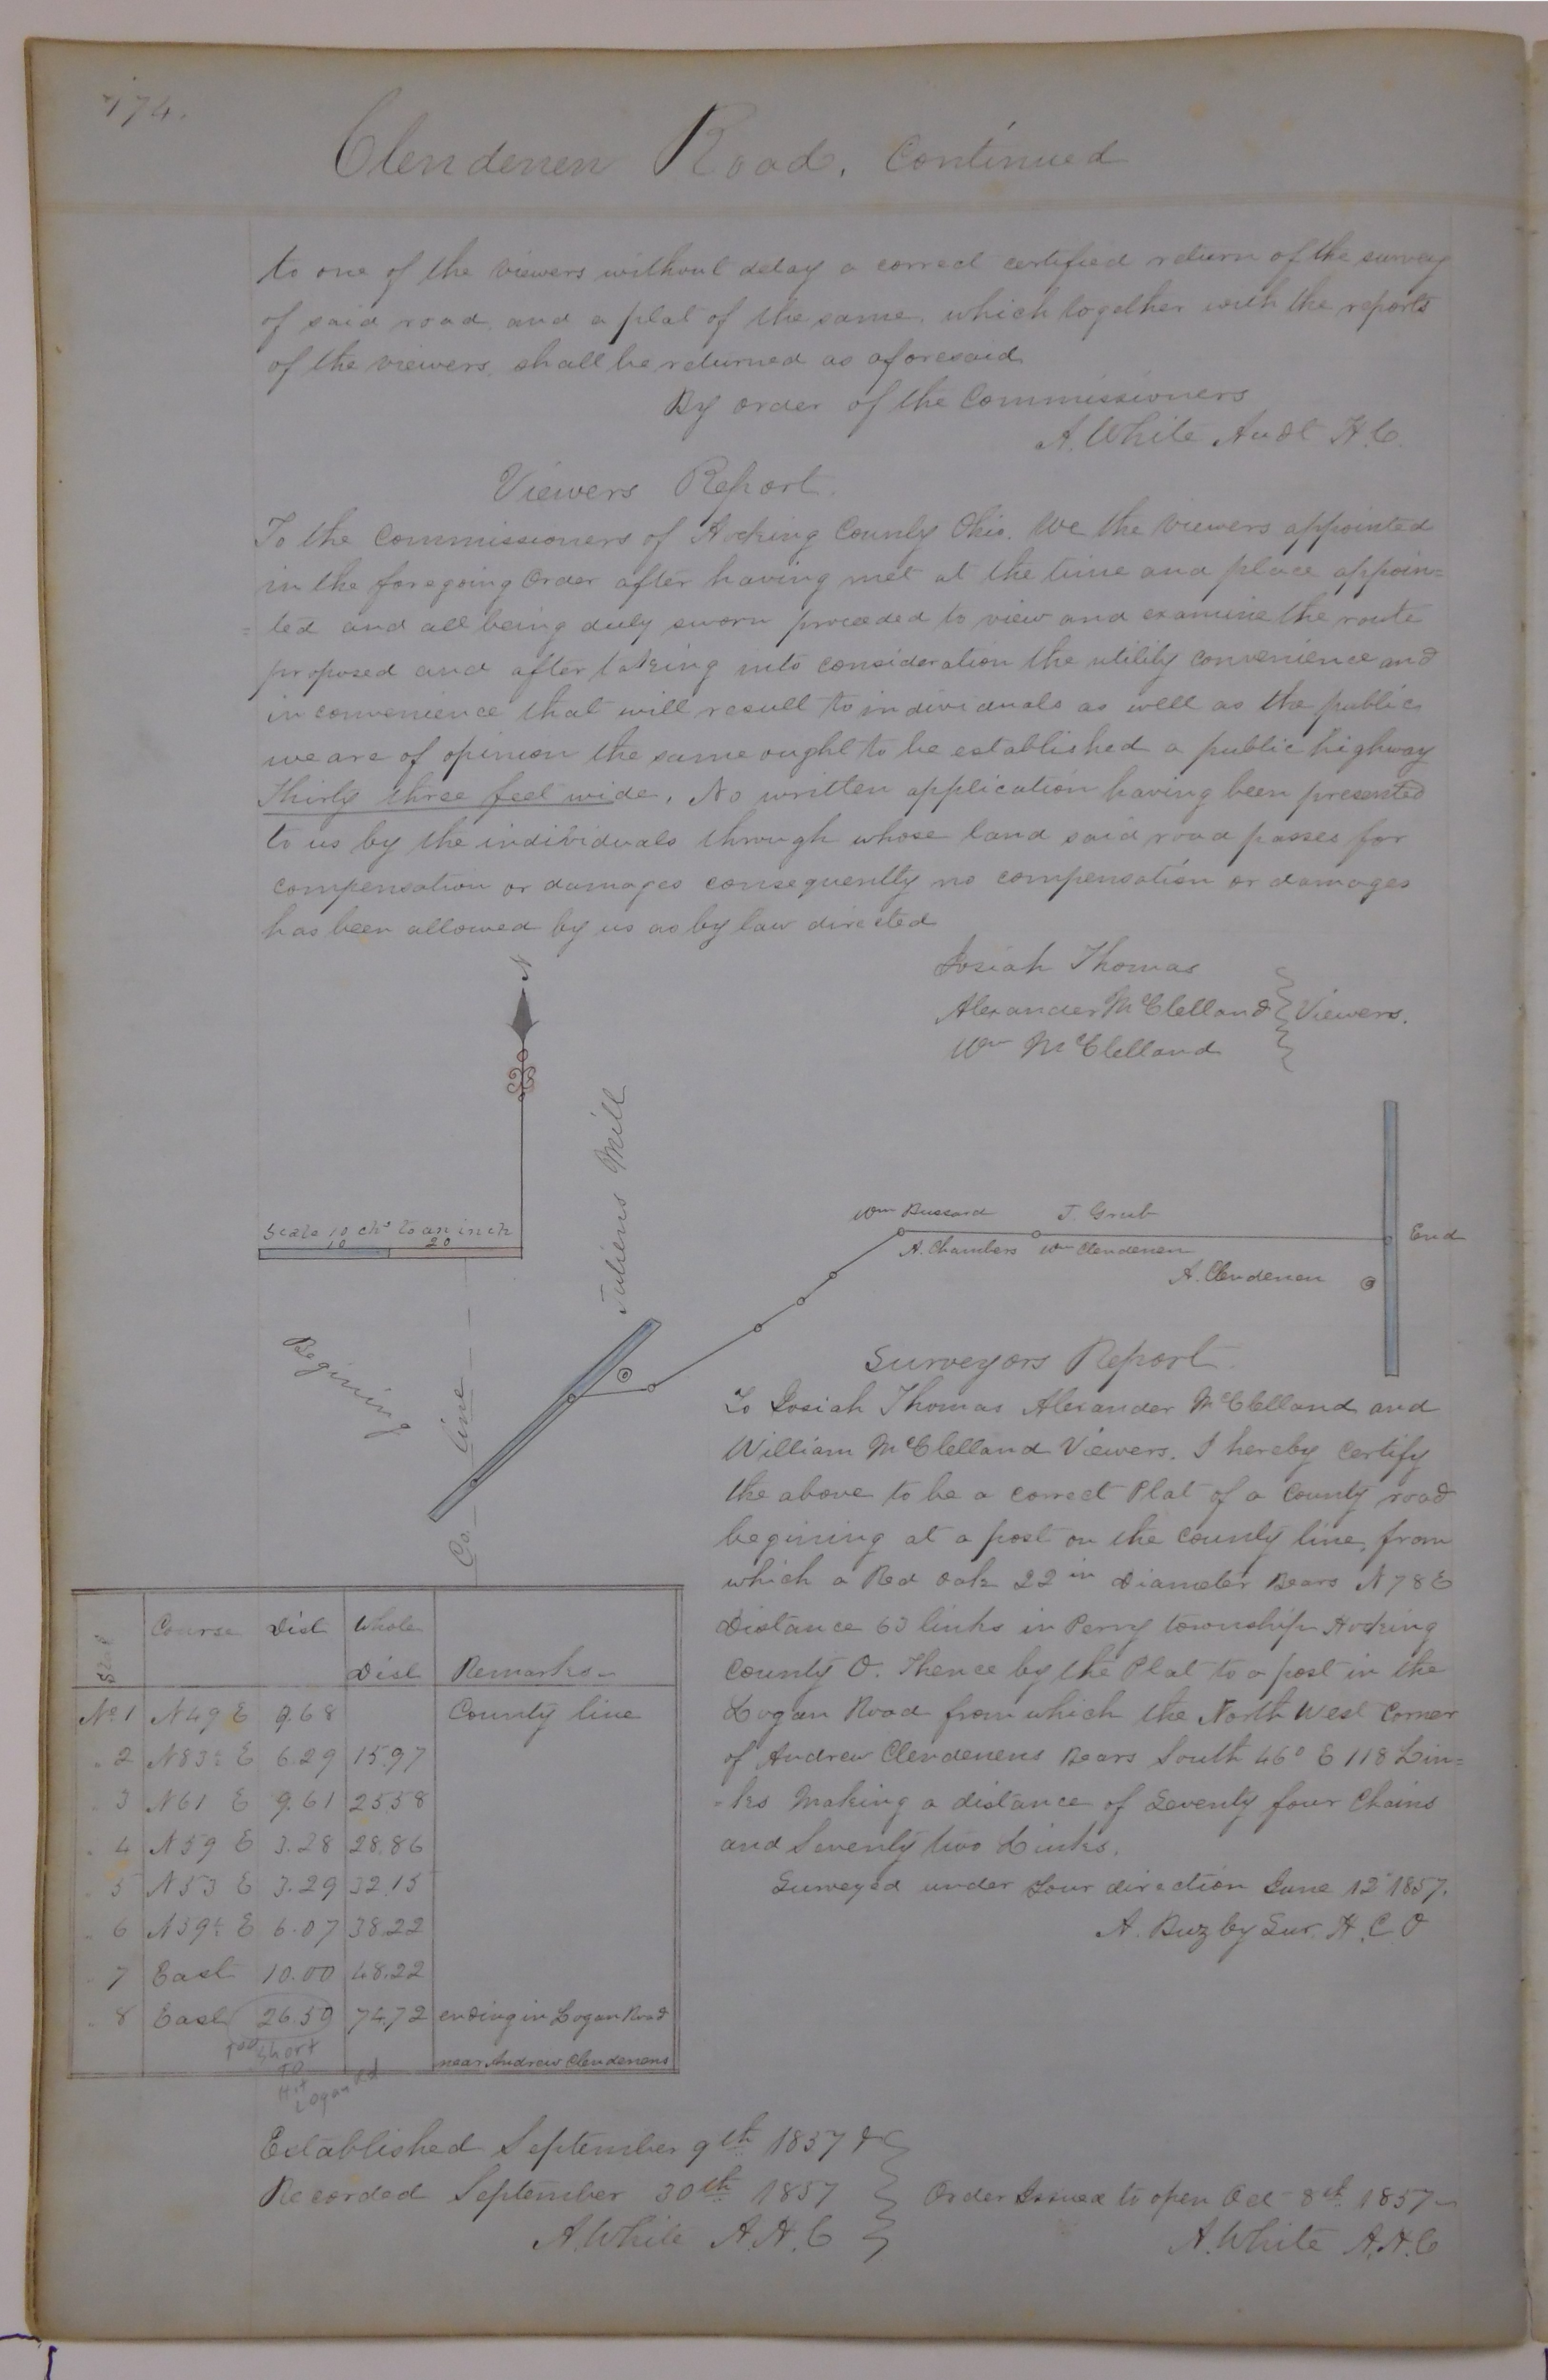 174.
Clendenen Road. Continued
to one of the viewers without delay a correct certified return of the survey
of said road, and a plat of the same, which together with the reports
of the viewers, shall be returned as aforesaid
By order of the Commissioners
A. White Audt H. C.
Viewers Report.
To the Commissioners of Hocking County Ohio. We the viewers appointed
in the foregoing Order after having met at the time and place appoin=
=ted and all being duly sworn proceeded to view and examine the route
proposed and after taking into consideration the utility convenience and
inconvenience that will result to individuals as well as the public
we are of opinion the same ought to be established a public highway
Thirty three feet wide. No written application having been presented
to us by the individuals through whose land said road passes for
compensation or damages consequently no compensation or damages
has been allowed by us as by law directed
Josiah Thomas
Alexander McClelland } Viewers.
Wm McClelland
N
Juliens Mill
Scale 10 chs to an inch
10 20
Wm Bussard J. Grub
A. Chambers Wm Clendenen
End
A. Clendenen
Begining
Co. line
Surveyors Report.
To Josiah Thomas Alexander McClelland and
William McClelland Viewers. I hereby Certify
the above to be a correct Plat of a County road
begining at a post on the county line, from
which a Red oak 22 in Diameter Bears N 78 E
Distance 63 links in Perry township Hocking
County O. Thence by the Plat to a post in the
Logan Road from which the North West Corner
of Andrew Clendenens Bears South 46° E 118 Lin=
=ks Making a distance of Seventy four Chains
and Seventy two Links.
Surveyed under your direction June 12 1857.
A. Buzby Sur. H. C. O
Course Dist Whole Dist Remarks
No 1 N 49 E 9.68 County line
" 2 N 83½ E 6.29 15.97
" 3 N 61 E 9.61 25.58
" 4 N 59 E 3.28 28.86
" 5 N 53 E 3.29 32.15
" 6 N 39½ E 6.07 38.22
" 7 East 10.00 48.22
" 8 East 26.50 74.72 ending in Logan Road
near Andrew Clendenens
Too Short
To
Hit
Logan Rd
Established September 9th 1857 &
Recorded September 30th 1857
A. White A. H. C
Order Issued to open Oct 8th 1857
A. White A. H. C